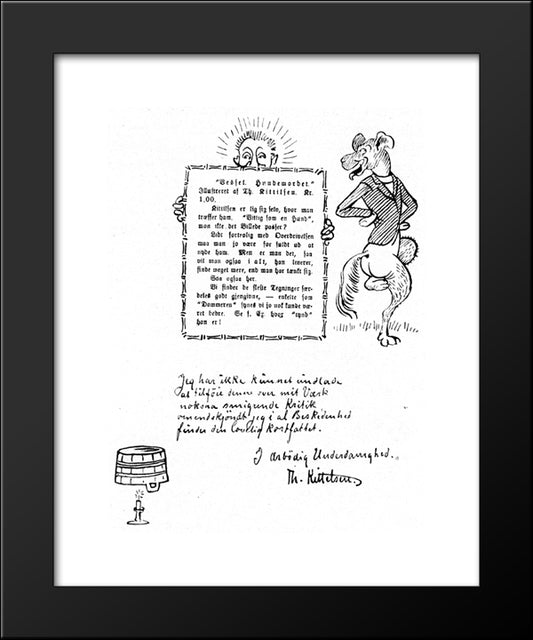 "Wessel. Hundemordet."
Illustreret af Th. Kittilsen. Kr.
1,00.
Kittilsen er lig sig selv, hvor man
træffer ham. "Vittig som en Hund",
mon ikke det Billede passer?
Lidt fortrolig med Overdrivelsen
maa man jo være for fuldt ud at
nyde ham. Men er man det, saa
vil man ogsaa i alt, han leverer,
finde meget mere, end man har tænkt sig.
Saa ogsaa her.
Vi finder de fleste Tegninger sær-
deles godt gjengivne, — enkelte som
"Dommeren" synes vi jo nok kunde væ-
ret bedre. Se f. Ex. hvor "tynd"
han er!
Jeg har ikke kunnet undlade
at tilføie denne over mit Værk
noksaa smigrende Kritik
omendskjøndt jeg i al Beskedenhed
finder den kortfattet.
I ærbödig Underdanighed.
Th. Kittelsen